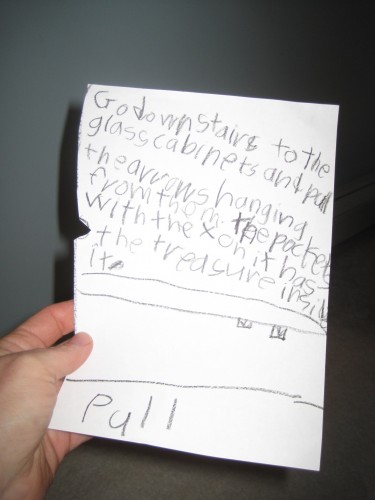 Go downstairs to the
glass cabinets and pull
the arrows hanging
from them. The pocket
with the x on it has
the treasure inside
it.
Pull